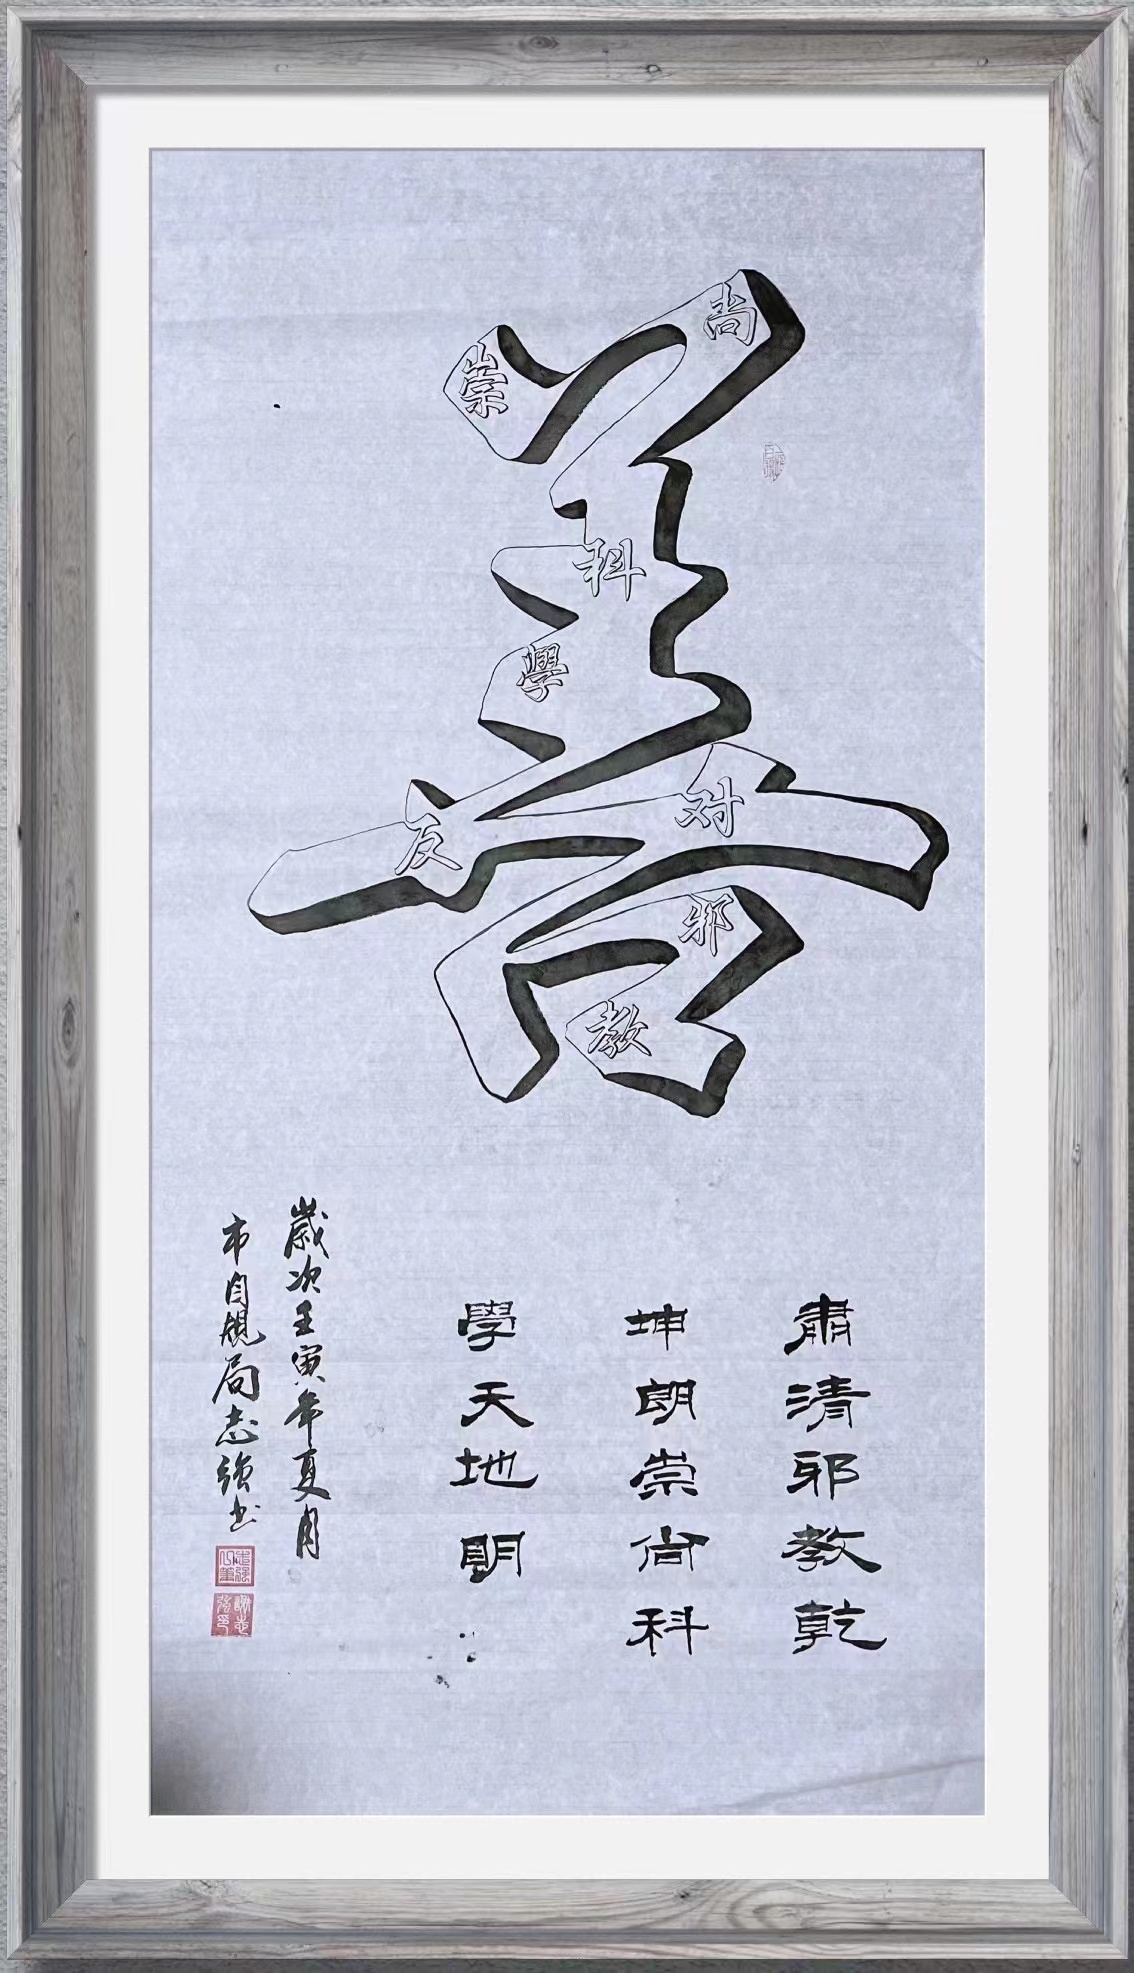 善
崇尚科學反对邪教
肅清邪教乾
坤朗崇尚科
學天地眀
歲次壬寅年夏月
市自規局志強书